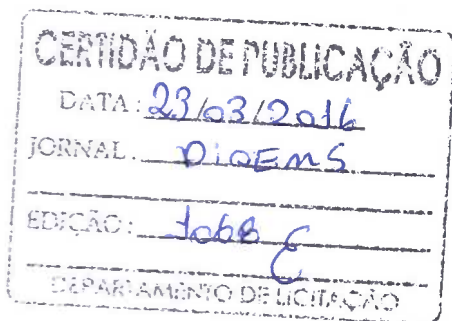 CERTIDÃO DE PUBLICAÇÃO
DATA: 23/03/2016
JORNAL: DIOEMS
EDIÇÃO: 1068
DEPARTAMENTO DE LICITAÇÃO